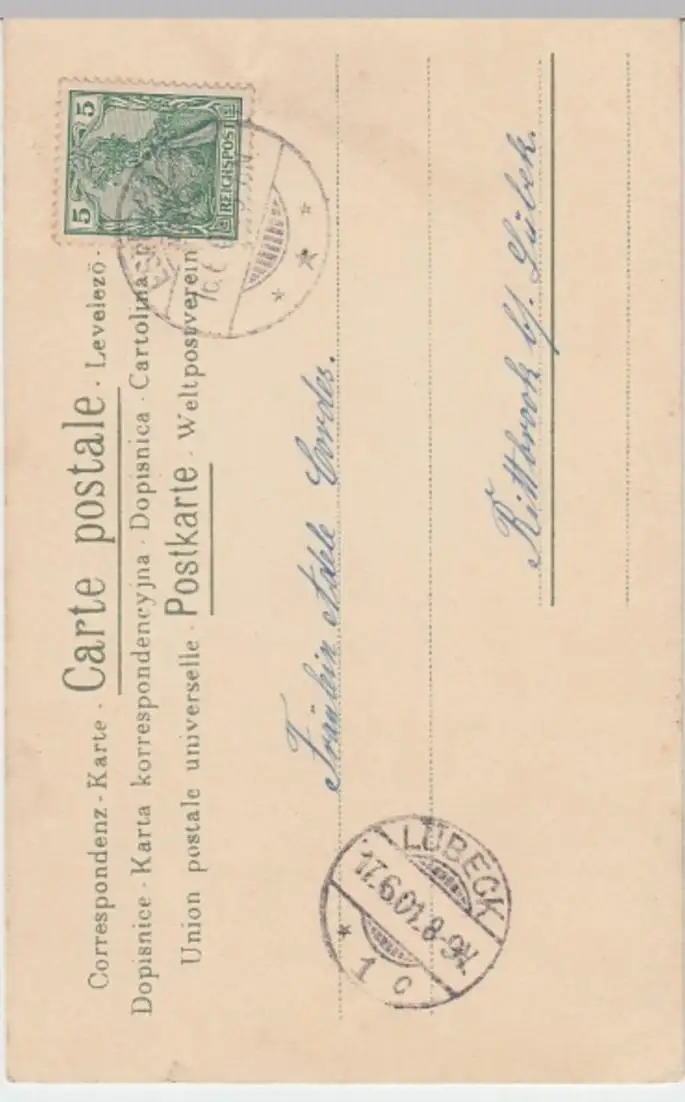 Correspondenz-Karte · Carte postale · Levelezö-
Dopisnice · Karta korrespondencyjna · Dopisnica · Cartolina
Union postale universelle · Postkarte · Weltpostverein
5 5
REICHSPOST
16.6.
Fräulein Adele Cordes.
Rittbrook b/. Lübek.
LÜBECK
17.6.01.8-9N.
* 1 c